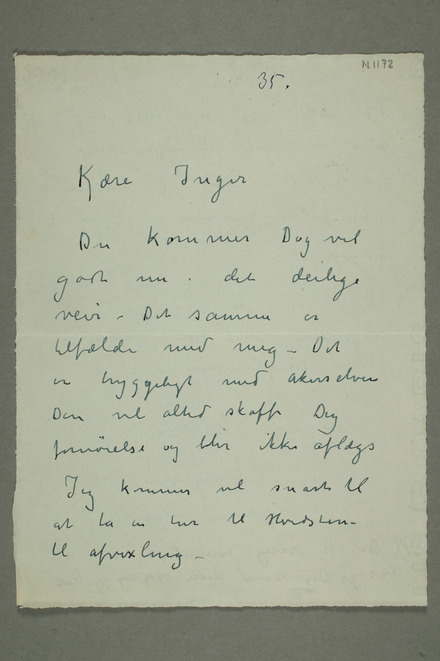 N 1172
35.
Kjære Inger
Du kommer Dog vel
godt nu i det deilige
veir – Det samme er
tilfælde med mig – Det
er hyggeligt med akerselven
Den vil altid skaffe Dig
fornøielse og blir ikke aflægs
Jeg kommer vel snart til
at ta en tur til Hvidsten –
til afvexling –